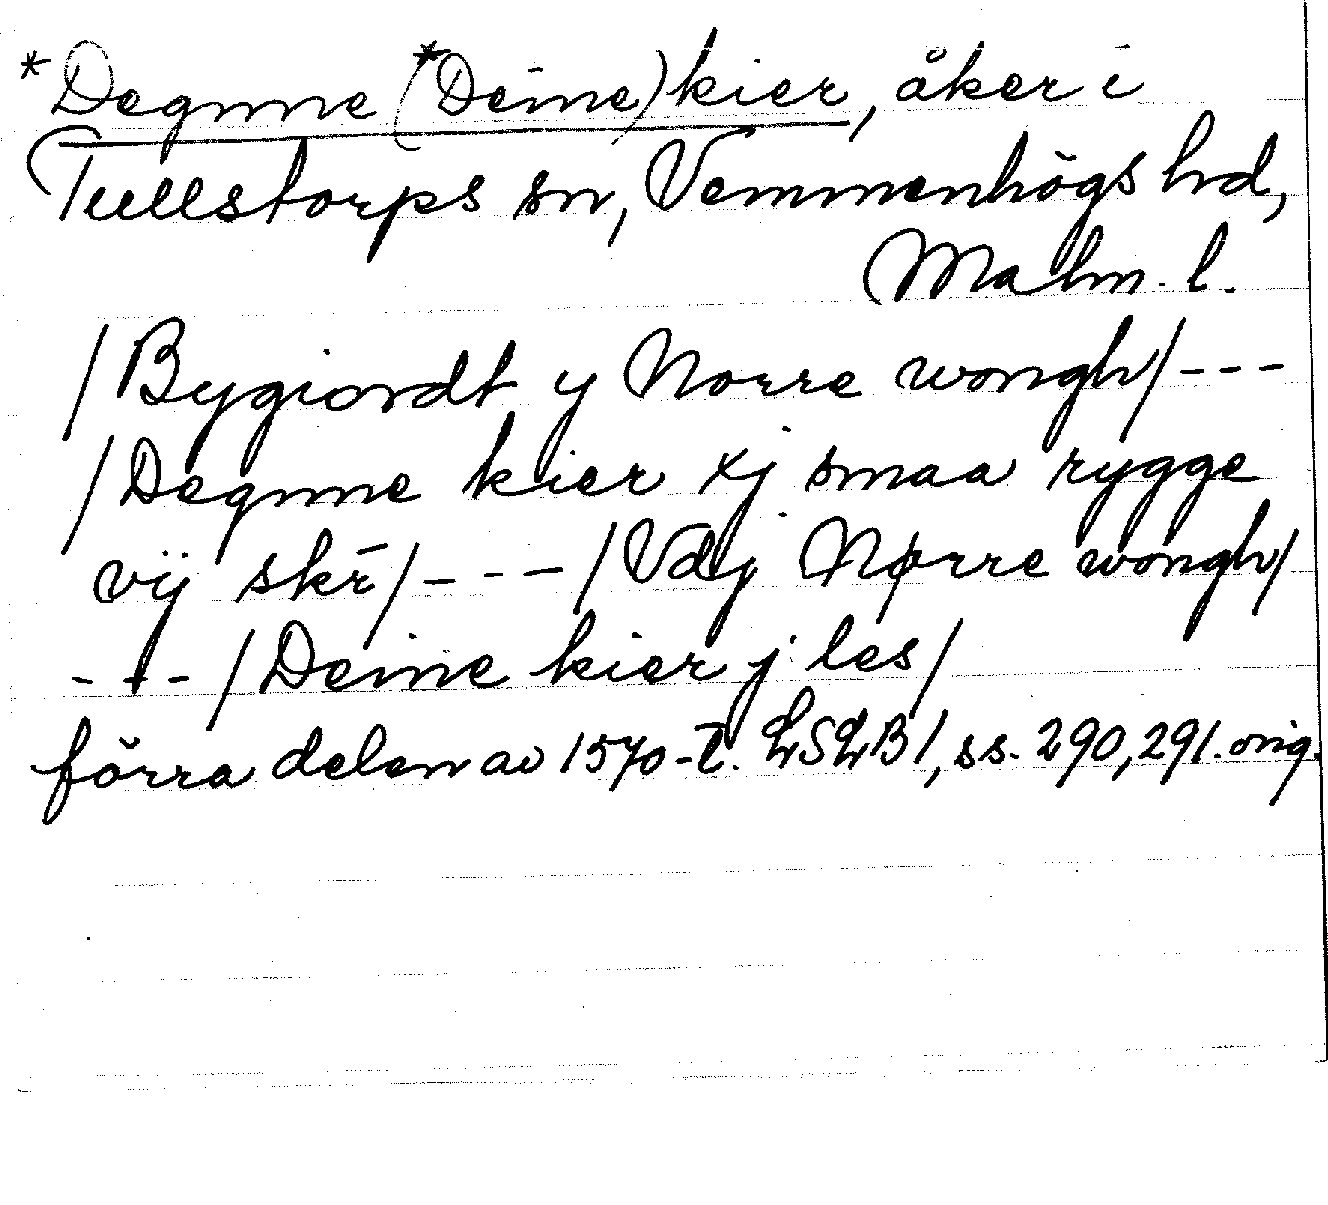 *Degnne (*Deine)kier, åker i
Tullstorps sn, Vemmenhögs hd,
Malm. l.
/Bygiordt y Norre wongh/---
/Degnne kier xj smaa rygge
vij skr̄/---/Vdj Nørre wongh/
---/Deine kier j les/
förra delen av 1570-t. LSLB1, ss. 290, 291. orig.